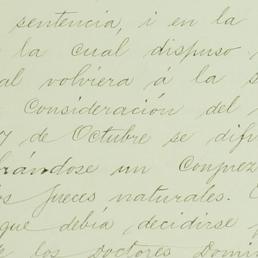 sentencia, i en la
la cual dispuso
al volviera á la
Consideración del
7 de Octubre se difu
brándose un Conprez
os jueces naturales.
que debía decidirse
los Doctores Domin